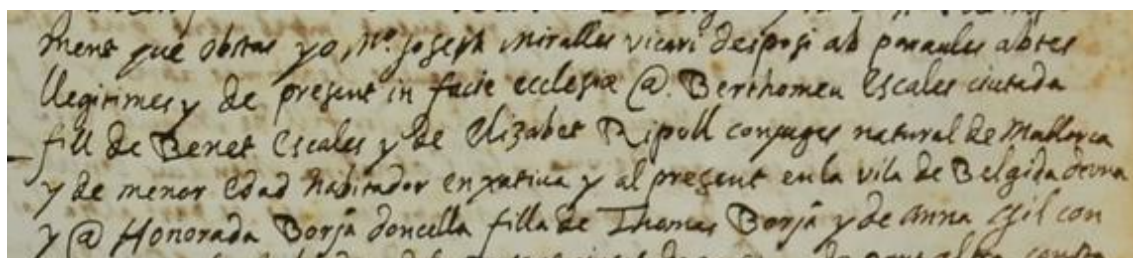 ment que obstas yo Mº Joseph Miralles vicari desposi ab paraules abtes
llegitimes y de present in facie ecclesiæ @. Berthomeu Escales ciutada
fill de Benet Escales y de Elizabet Ripoll conjuges natural de Mallorca
y de menor edad habitador en xativa y al present en la vila de Belgida de una
y @ Honorada Borja doncella filla de Thomas Borja y de Anna Gil con